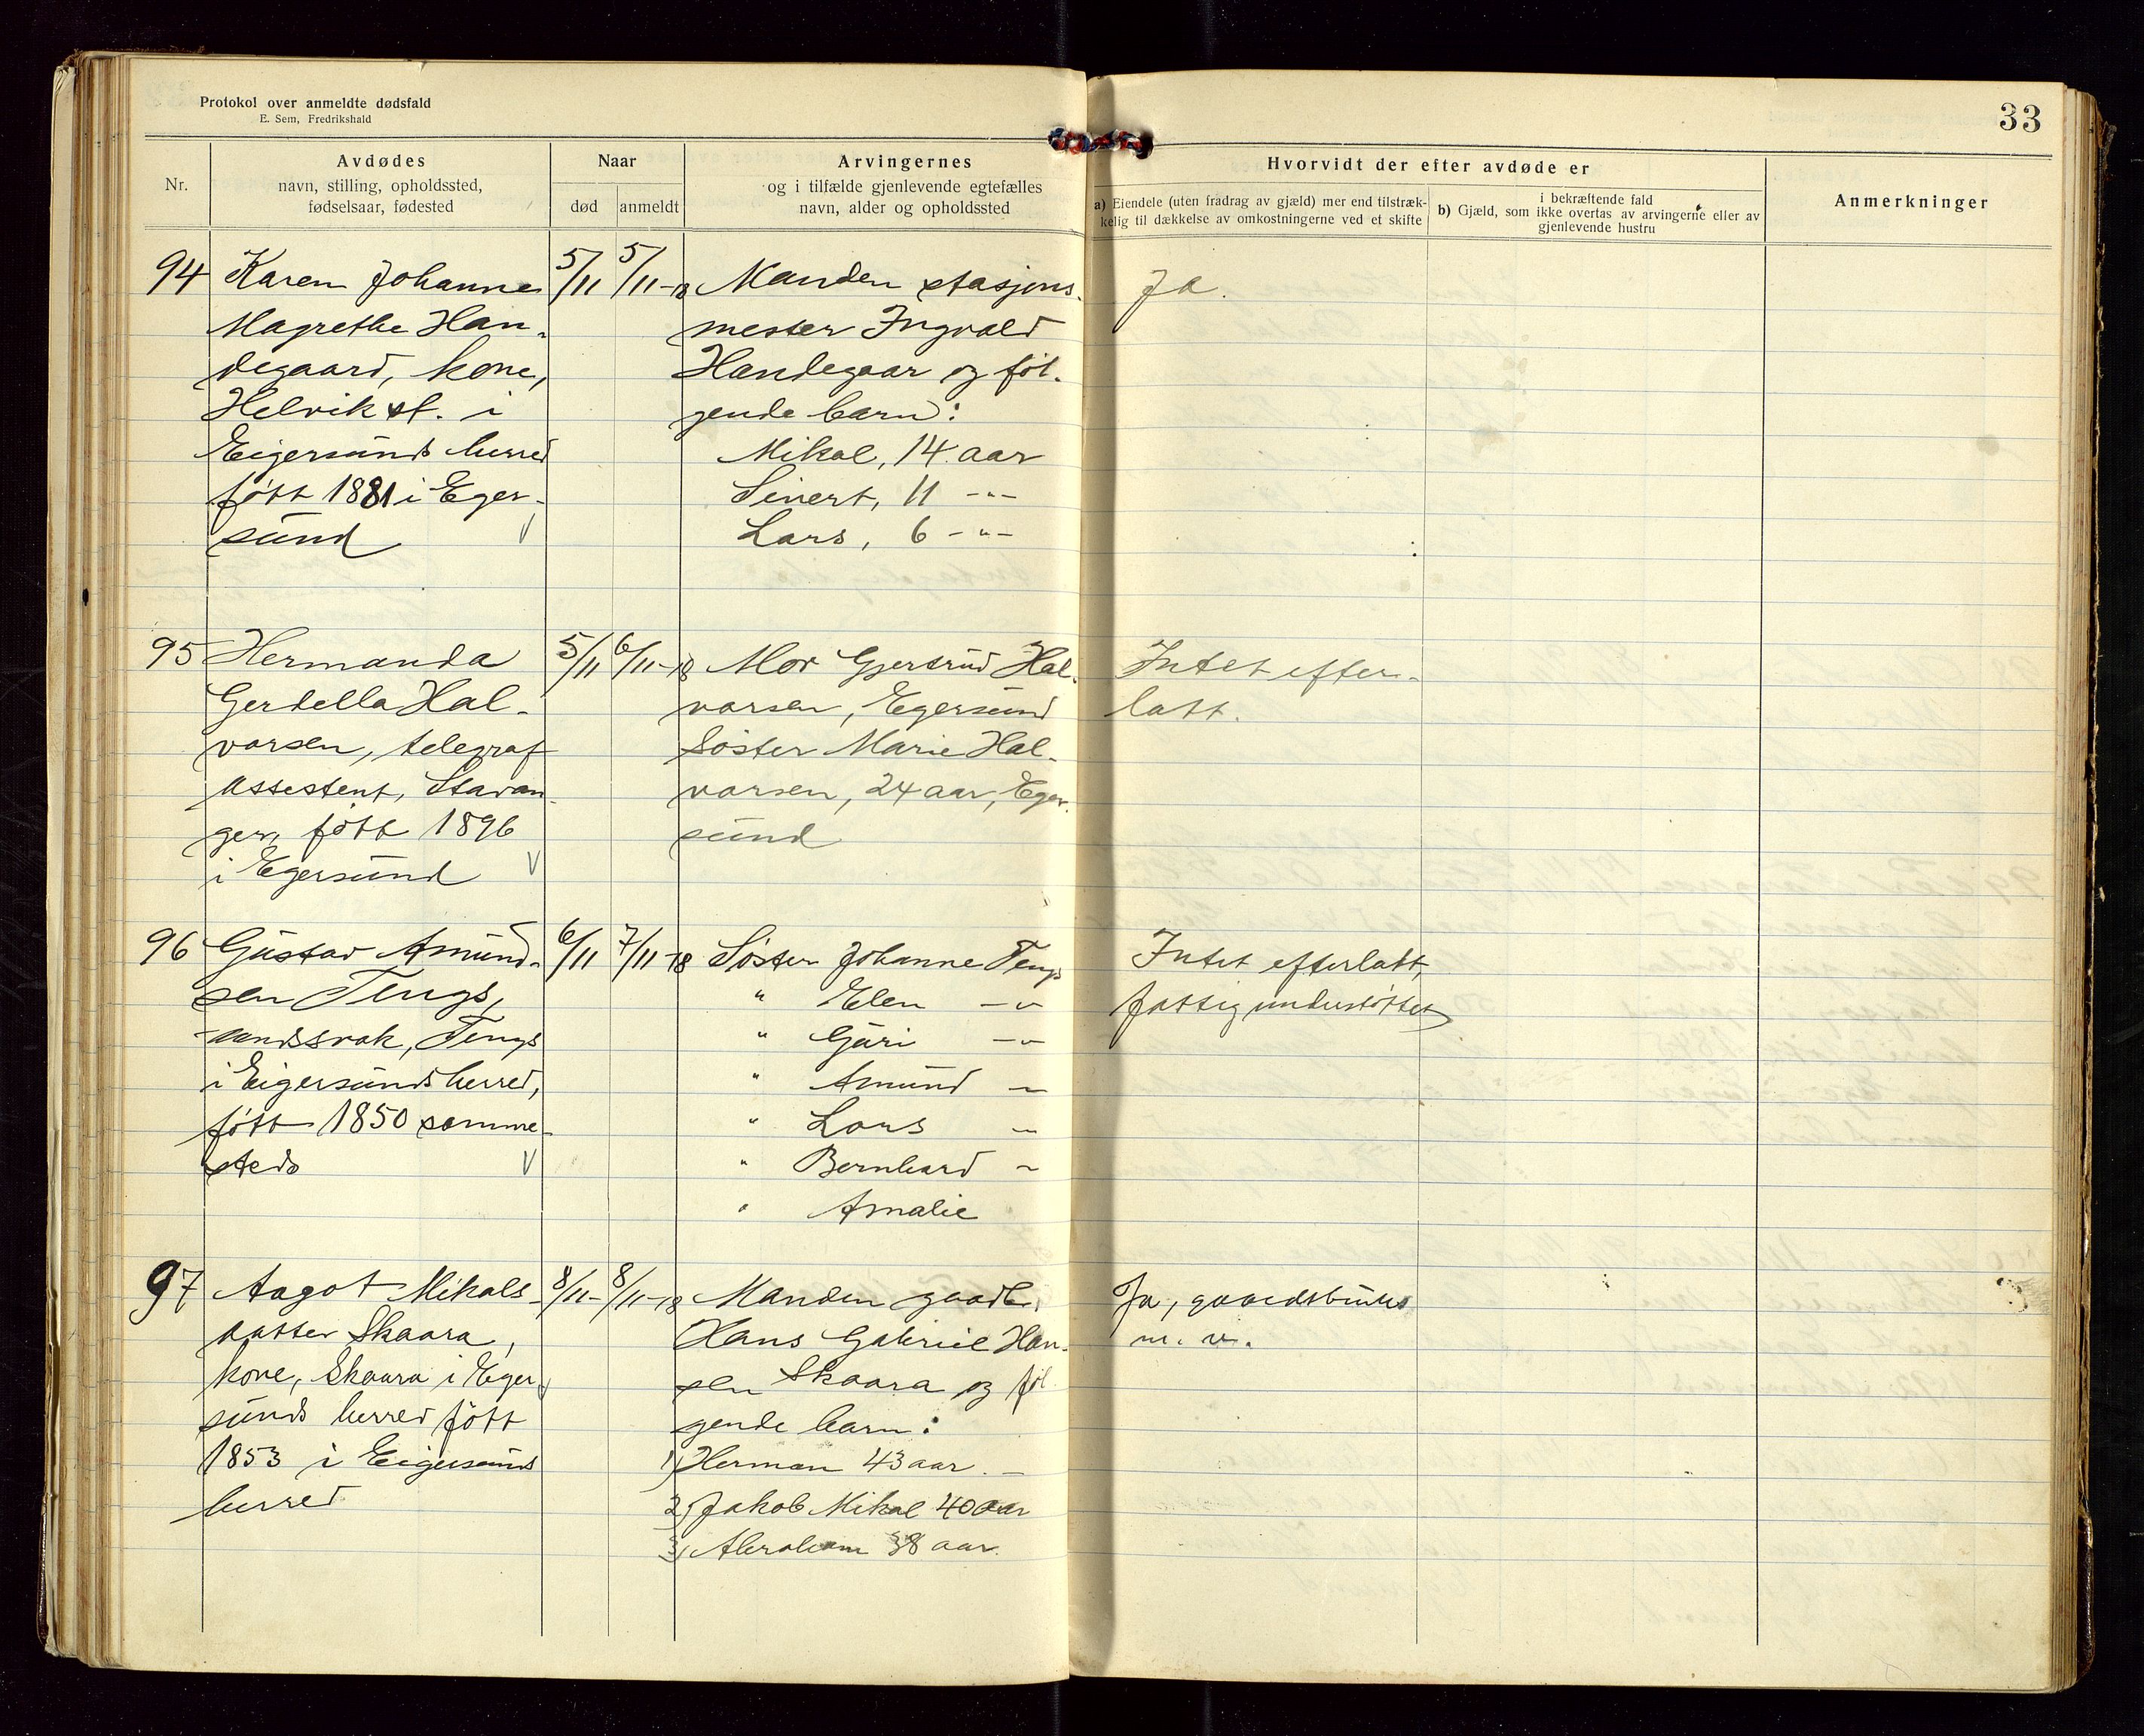 Protokol over anmeldte dødsfald
E. Sem, Fredrikshald
33
Nr.
Avdødes
navn, stilling, opholdssted,
fødselsaar, fødested
Naar
død
anmeldt
Arvingernes
og i tilfælde gjenlevende egtefælles
navn, alder og opholdssted
Hvorvidt der efter avdøde er
a) Eiendele (uten fradrag av gjæld) mer end tilstræk-
kelig til dækkelse av omkostningerne ved et skifte
b) Gjæld, som
i bekræftende fald
ikke overtas av arvingerne eller av
gjenlevende hustru
Anmerkninger
94
Karen Johanne
Magrethe Han-
degaard, kone,
Helvik st. i
Eigersunds herred
født 1881 i Eger-
sund
5/11
5/11-18
Manden stasjons-
mester Ingvald
Handegaar og føl-
gende barn:
Mikal, 14 aar
Sivert, 11 -"-
Lars, 6 -"-
Ja.
95
Hermanda
Gerdella Hal-
vorsen, telegraf
assestent, Stavan-
ger, født 1896
i Egersund
5/11
6/11-18
Mor Gjertrud Hal-
vorsen, Egersund
Søster Marie Hal-
vorsen, 24 aar, Eger-
sund
Intet efter-
latt.
96
Gustav Amund-
sen Tengs,
aandssvak, Tengs
i Eigersunds herred,
født 1850 samme-
steds
6/11
7/11-18
Søster Johanne Tengs
" Elen -"
" Guri -"-
" Amund -"
" Lars -"
" Bernhard -"
" Amalie
Intet efterlatt,
fattigunderstøttet
97
Aagot Mikals-
datter Skaara,
kone, Skaara i Eger-
sunds herred født
1853 i Eigersunds
herred
8/11-
8/11-18
Manden gaardb.
Hans Gabriel Han-
sen Skaara og føl-
gende barn:
1) Herman 43 aar. -
2) Jakob Mikal 40 aar
3) Abraham 38 aar.
Ja, gaardsbruk
m. v.